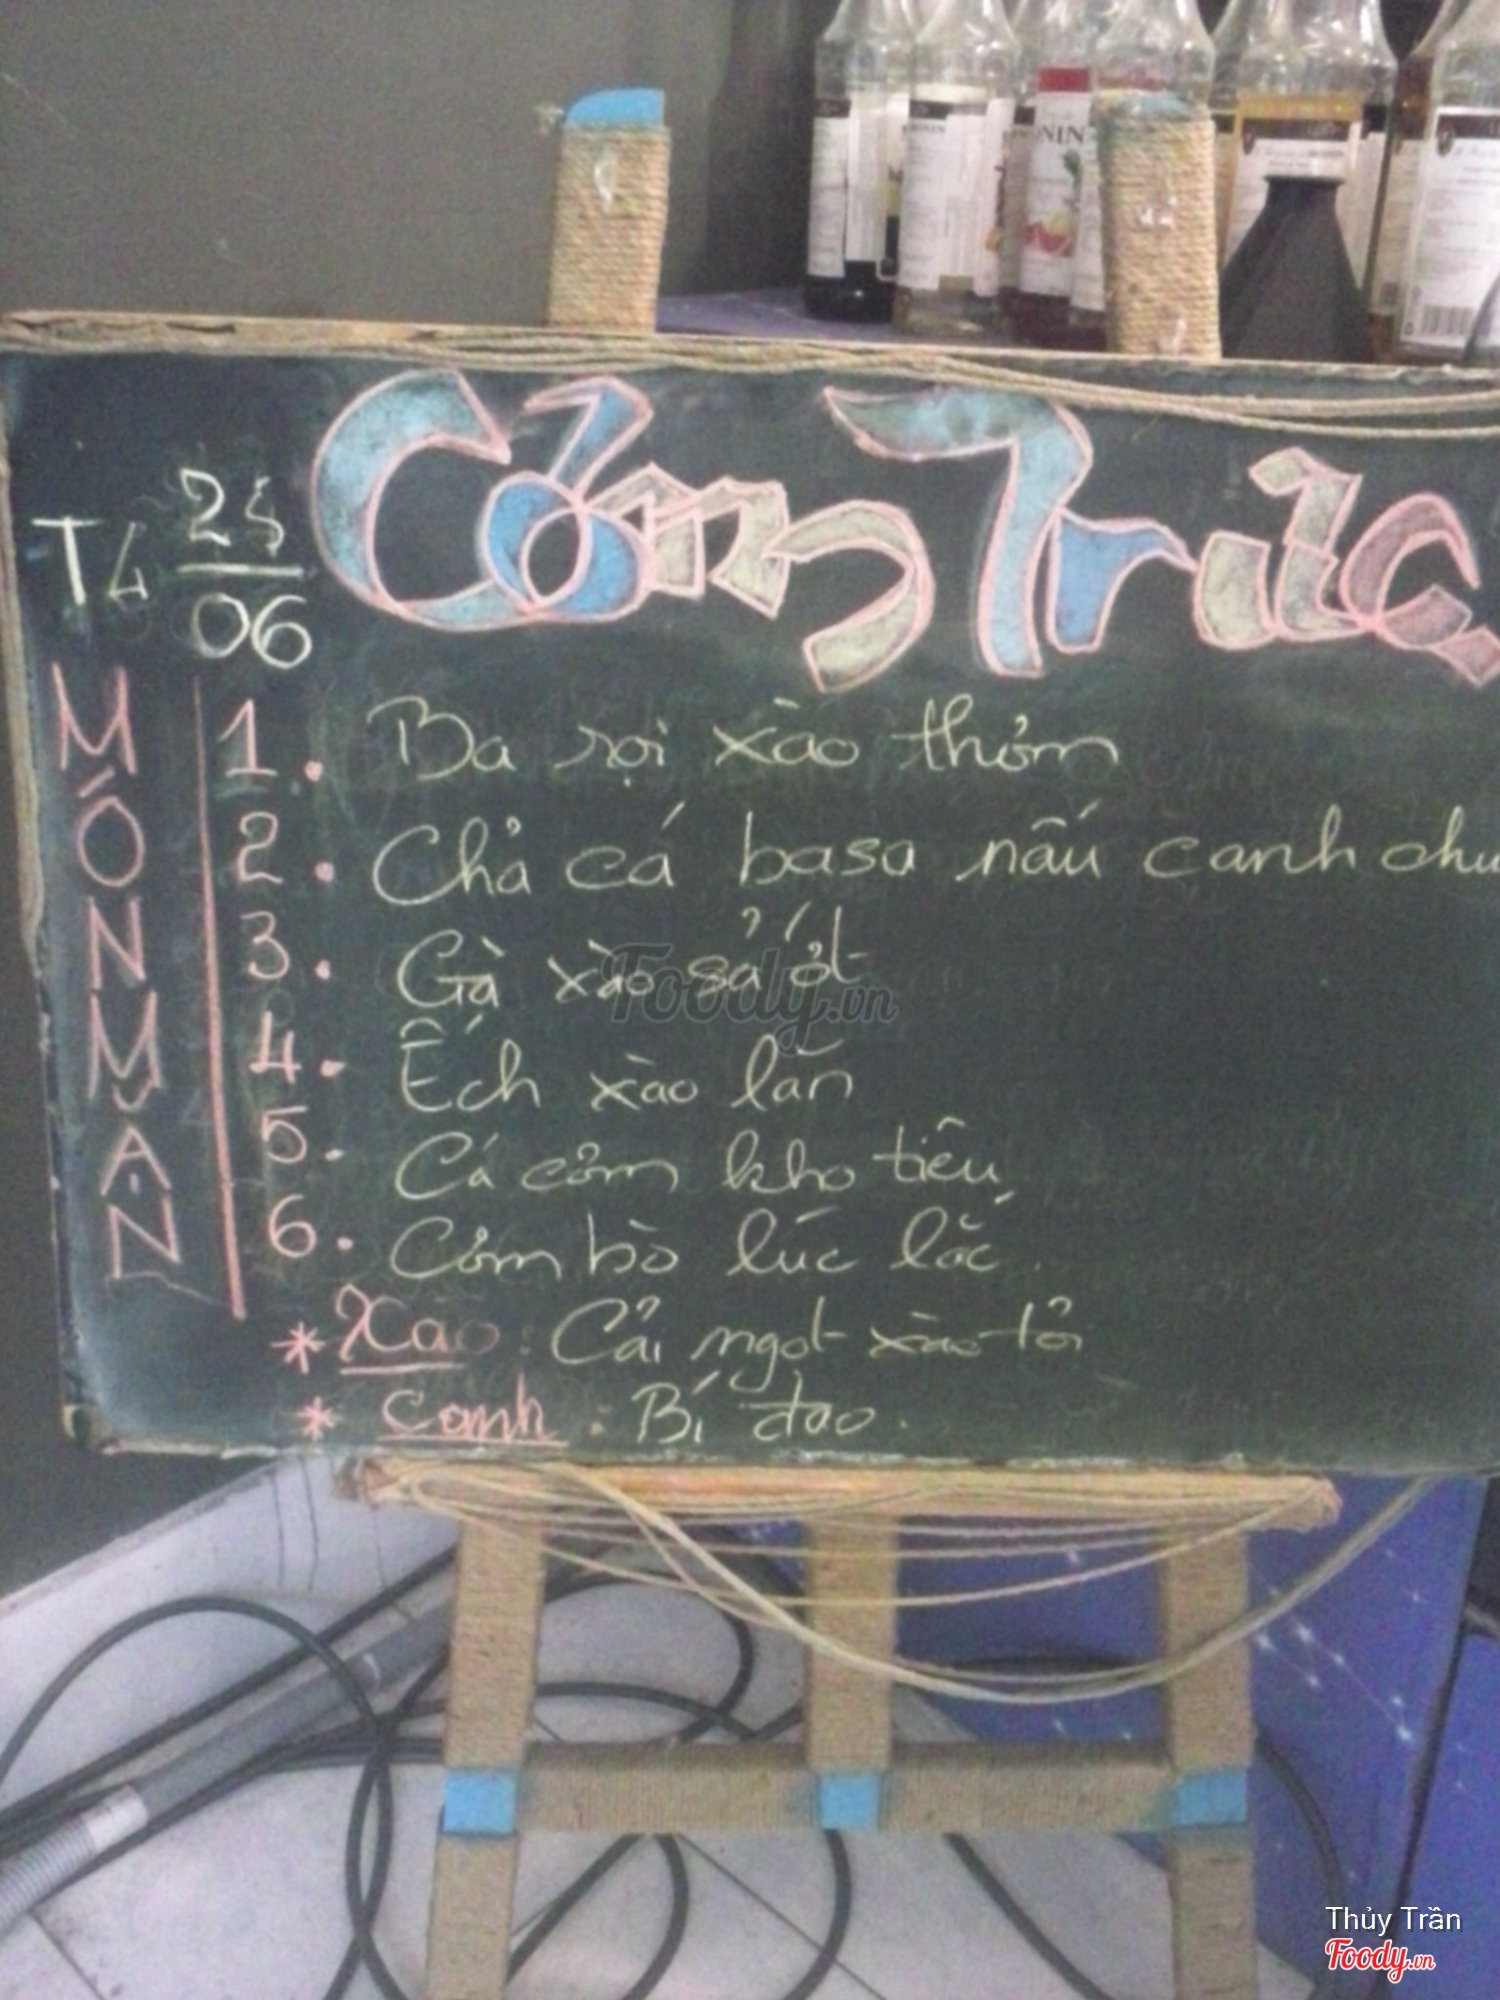 Cơm Trưa
T4 25/06
MÓN MẶN
1. Ba rọi xào thơm
2. Chả cá basa nấu canh chu
3. Gà xào sả ớt
4. Ếch xào lăn
5. Cá cơm kho tiêu
6. Cơm bò lúc lắc.
* Xào: Cải ngọt xào tỏi
* Canh: Bí đao.
Foody.vn
MONIN
Thủy Trần
Foody.vn